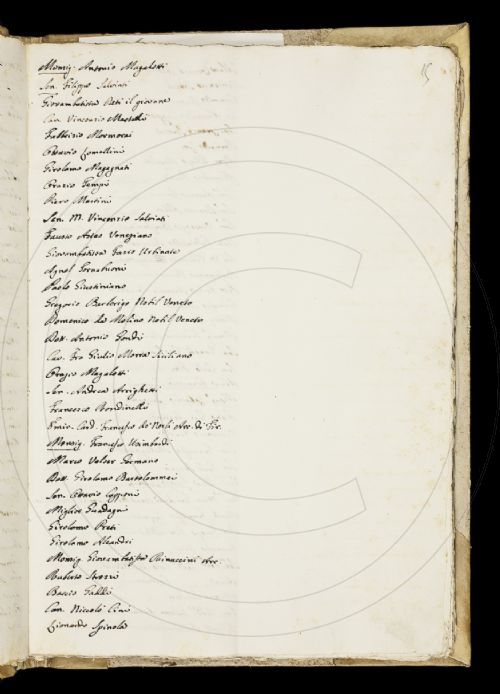 15
Monsig. Antonio Magalotti
Sen. Filippo Salviati
Giovambatista Deti il giovane
Can. Vincenzio Martelli
Fabbrizio Mormorai
Ottavio Lomellini
Girolamo Magagnati
Orazio Tempi
Piero Martini
Sen. M. Vincenzio Salviati
Fausto Veneziano
Giovambatista Urbinate
Agnol
Paolo Giustiniano
Gregorio Barbrigo Nobil Veneto
Domenico da Molino Nobil Veneto
Dott. Antonio Gondi
Cav. Fra Giulio Morra Siciliano
Orazio Magalotti
Sen. Andrea Arrighetti
Francesco Bondinelli
Emin. Card. Francesco de' Nerli Arc. di Fir.
Monsig. Francesco Rimbaldi
Marco Velser Germano
Dott. Girolamo Bartolommei
Sen. Ottavio Capponi
Migliore Guadagni
Girolamo Preti
Girolamo Aleandri
Monsig. Giovambatista Rinuccini Arc.
Ruberto Strozzi
Baccio
Can. Niccolò Cini
Lionardo Spinola